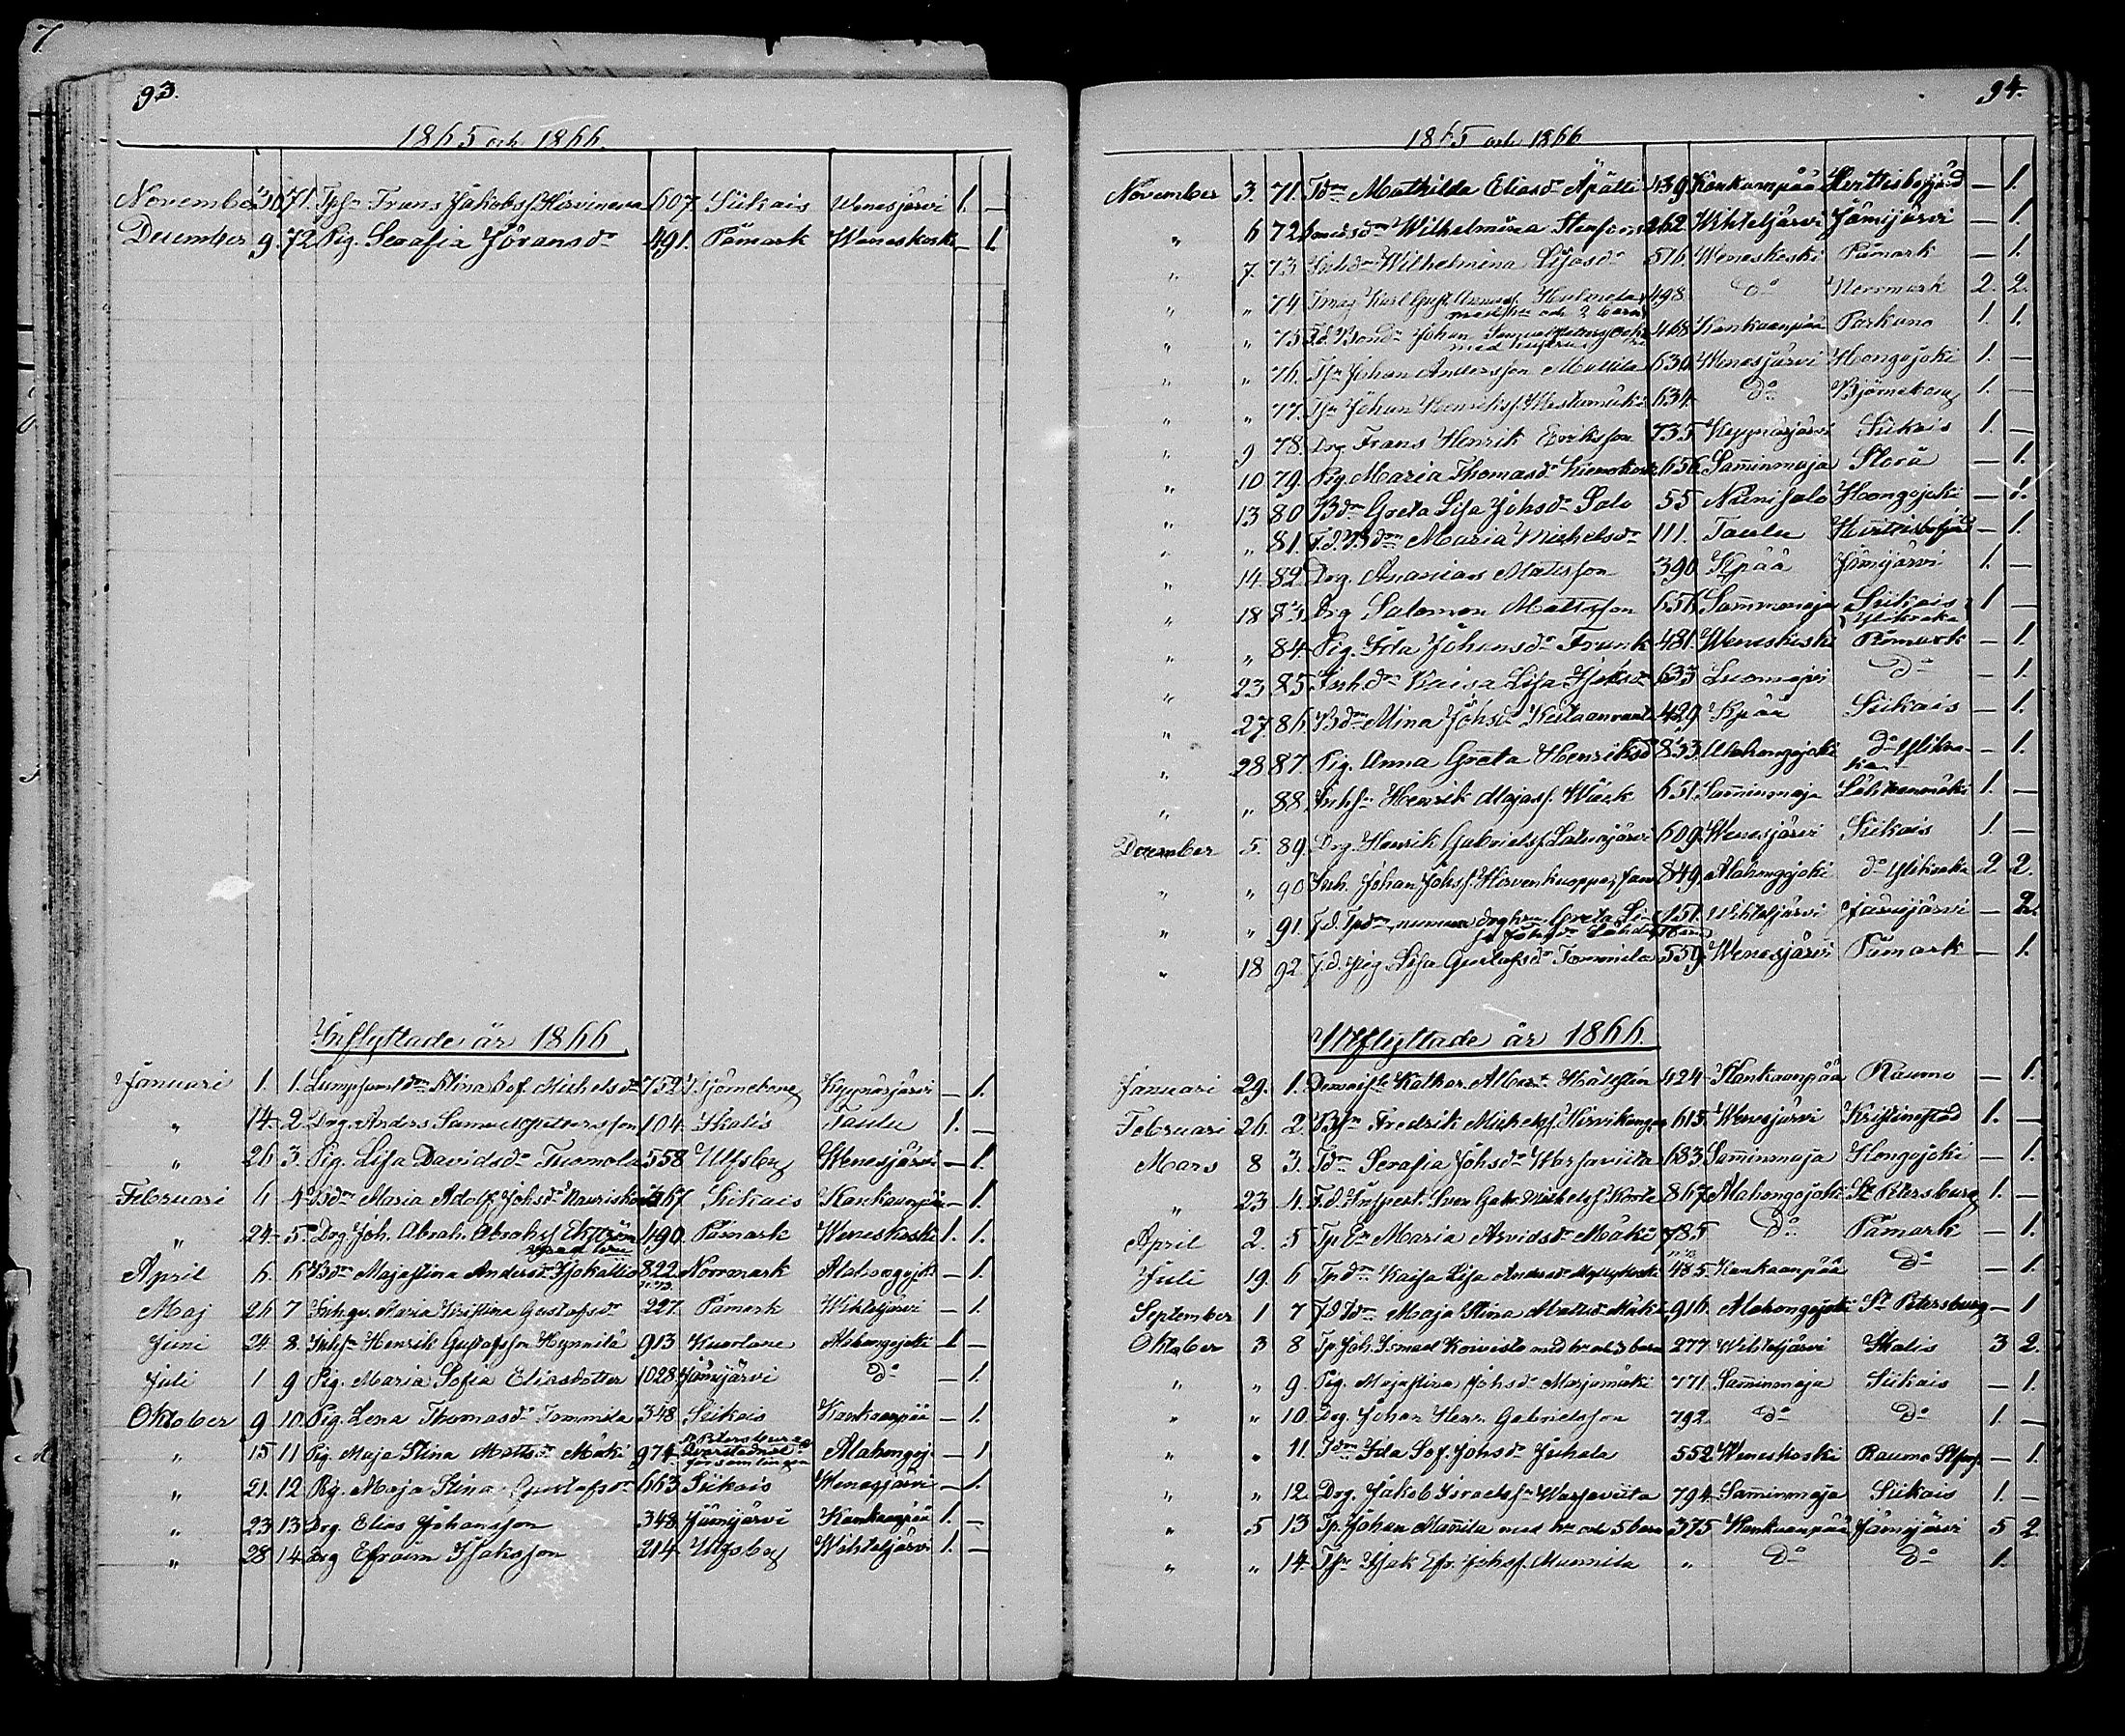 7.
93.
1865 och 1866.
November 30 71. Tpsn Frans Jakobss. Hirvineva 607. Siikais Wenesjärvi 1. —
December 9. 72 Pig. Serafia Göransdr 491. Påmark Weneskoski — 1
Inflyttade år 1866
Januari 1. 1. Lumpsaml.dr Stina Sof. Michelsdr 752 Björneborg Kyynärjärvi — 1.
" 14. 2. Drg. Anders Samuel Pettersson 104. Ikalis Taulu 1. —
" 26 3. Pig. Lisa Davidsdr Tuomola 558 Ulfsby Wenesjärvi — 1.
Februari 6 4. Bdr Maria Adolf. Johsdr 367 Siikais Kankaanpää — 1.
" 24. 5. Drg. Joh. Abrah. Abrahss Ekström 490. Påmark Weneskoski 1. 1.
April 6. 6 Bdr Majastina Andersdr Isokallio 822 Norrmark Alahongojoki — 1.
Maj 26 7 Inhqv. Maria Kristina Gustafsdr 227. Påmark Wihteljärvi — 1.
Juni 24. 8. Inhsn Henrik Gustafsson Hynnilä 913 Kuortane Alahongojoki 1 —
Juli 1 9 Pig. Maria Sofia Eliasdotter 1028. Jämijärvi Do — 1.
Oktober 9 10. Pig. Lena Thomasdr Tommila 348 Siikais Kankaanpää — 1.
" 15 11 Pig. Maja Stina Mattsdr Mäki 974 St Petersburg församlingen Alahongoj. — 1
" 21. 12 Pig. Maja Stina Gustafsdr 663 Siikais Wenesjärvi — 1.
" 23 13 Drg. Elias Johansson 348 Jämijärvi Kankaanpää 1. —
" 28 14 Drg Efraim Isaksson 214 Ulfsby Wihteljärvi 1. —
94.
1865 och 1866
November 3. 71. Tdr Mathilda Eliasdr Äpätti 439 Kankaanpää Hvittisbofjärd — 1.
" 6 72 Wilhelmina 262 Wihteljärvi Jämijärvi — 1.
" 7. 73 Wilhelmina Lisasdr 516 Weneskoski Påmark — 1.
" " 74. Karl Gust. med hu och 2 barn 498 Do Norrmark 2. 2.
" " 75 F.d. Bond. Johan Samuel med hustru 468 Kankaanpää Parkano 1. 1.
" " 76. Tsn Johan Andersson Mattila 630 Wenesjärvi Hongojoki 1. —
" " 77. Tsn Johan Henrikss. Westamäki 634 Do Björneborg 1. —
" 9 78. Drg Frans Henrik Eriksson 735 Kyynärjärvi Siikais 1. —
" 10 79. Pig. Maria Thomasdr 656 Samminmaja Storå — 1.
" 13 80 Bdr Greta Lisa Johsdr Salo 55 Niinisalo Hongojoki — 1.
" " 81. F.d. Bdr Maria Michelsdr 111. Taulu Hvittisbofjärd — 1.
" 14. 82 Drg. Ananias Matsson 390 Kpää Jämijärvi 1. —
" 18 83 Drg Salomon Mattsson 656 Samminmaja Siikais Ylikraka 1 —
" " 84. Pig. Ida Johansdr Frank 481. Weneskoski Påmark — 1
" 23 85 Inh.dr Kaisa Lisa Isaksdr 633 Luomajärvi Do — 1
" 27. 86. Bdr Mina Johsdr 429. Kpää Siikais — 1.
" 28 87. Pig. Anna Greta Henriksdr 853 Alahongojoki Do Ylikraka — 1.
" " 88. Inhsn Henrik Majass. Wiick 651. Samminmaja Lähteenmäki 1. —
December 5. 89. Drg. Henrik Gabrielss. Latvajärvi 609. Wenesjärvi Siikais 1. —
" " 90 Inh. Johan Johss. Hirvenkuoppa, fam. 849. Alahongojoki do Ylikraka 2. 2.
" " 91. F.d. Tpdr numera drghu Greta Lisa Johsdr 151. Wihteljärvi Jämijärvi — 2.
" 18 92. F.d. Pig Lisa Gustafsdr Tommila 559. Wenesjärvi Påmark — 1.
Utflyttade år 1866.
Januari 29. 1. Kathar. Albert. 424 Kankaanpää Raumo — 1.
Februari 26. 2. Bsn Fredrik Michelss. Hirvikangas 615. Wenesjärvi Kristinestad 1. —
Mars 8 3. Tdr Serafia Johsdr Warsaviita 683 Samminmaja Hongojoki — 1.
" 23 4. F.d. Inspekt. Sven Gabr. Michelss. 867. Alahongojoki St Petersburg 1. —
April 2. 5 Tp.Er Maria Arvidsdr Mäki 785 Do Påmark — 1.
Juli 19. 6 Tpdr Kaisa Lisa Andersdr Myllykoski 485. Kankaanpää Do — 1
September 1 7 F.d. Tdr Maja Stina Mattsdr Mäki 916. Alahongojoki St Petersburg — 1
Oktober 3 8 Tp. Joh. Ismael Koivisto med hu och 3 barn 277 Wihteljärvi Ikalis 3 2.
" " 9. Pig. Majastina Johsdr Marjamäki 771 Samminmaja Siikais — 1.
" " 10. Drg. Johan Henr. Gabrielsson 792 do Do 1. —
" " 11. Tdr Ida Sof. Johsdr Juhala 552 Weneskoski Raumo — 1.
" " 12. Drg. Jakob Israelsn Warsaviita 794. Samminmaja Siikais 1. —
" 5 13 Tp. Johan Mannila med hu och 5 barn 375 Kankaanpää Jämijärvi 5 2
" " 14. Tsn Isak Efr. Johss. Mannila " Do Do 1.